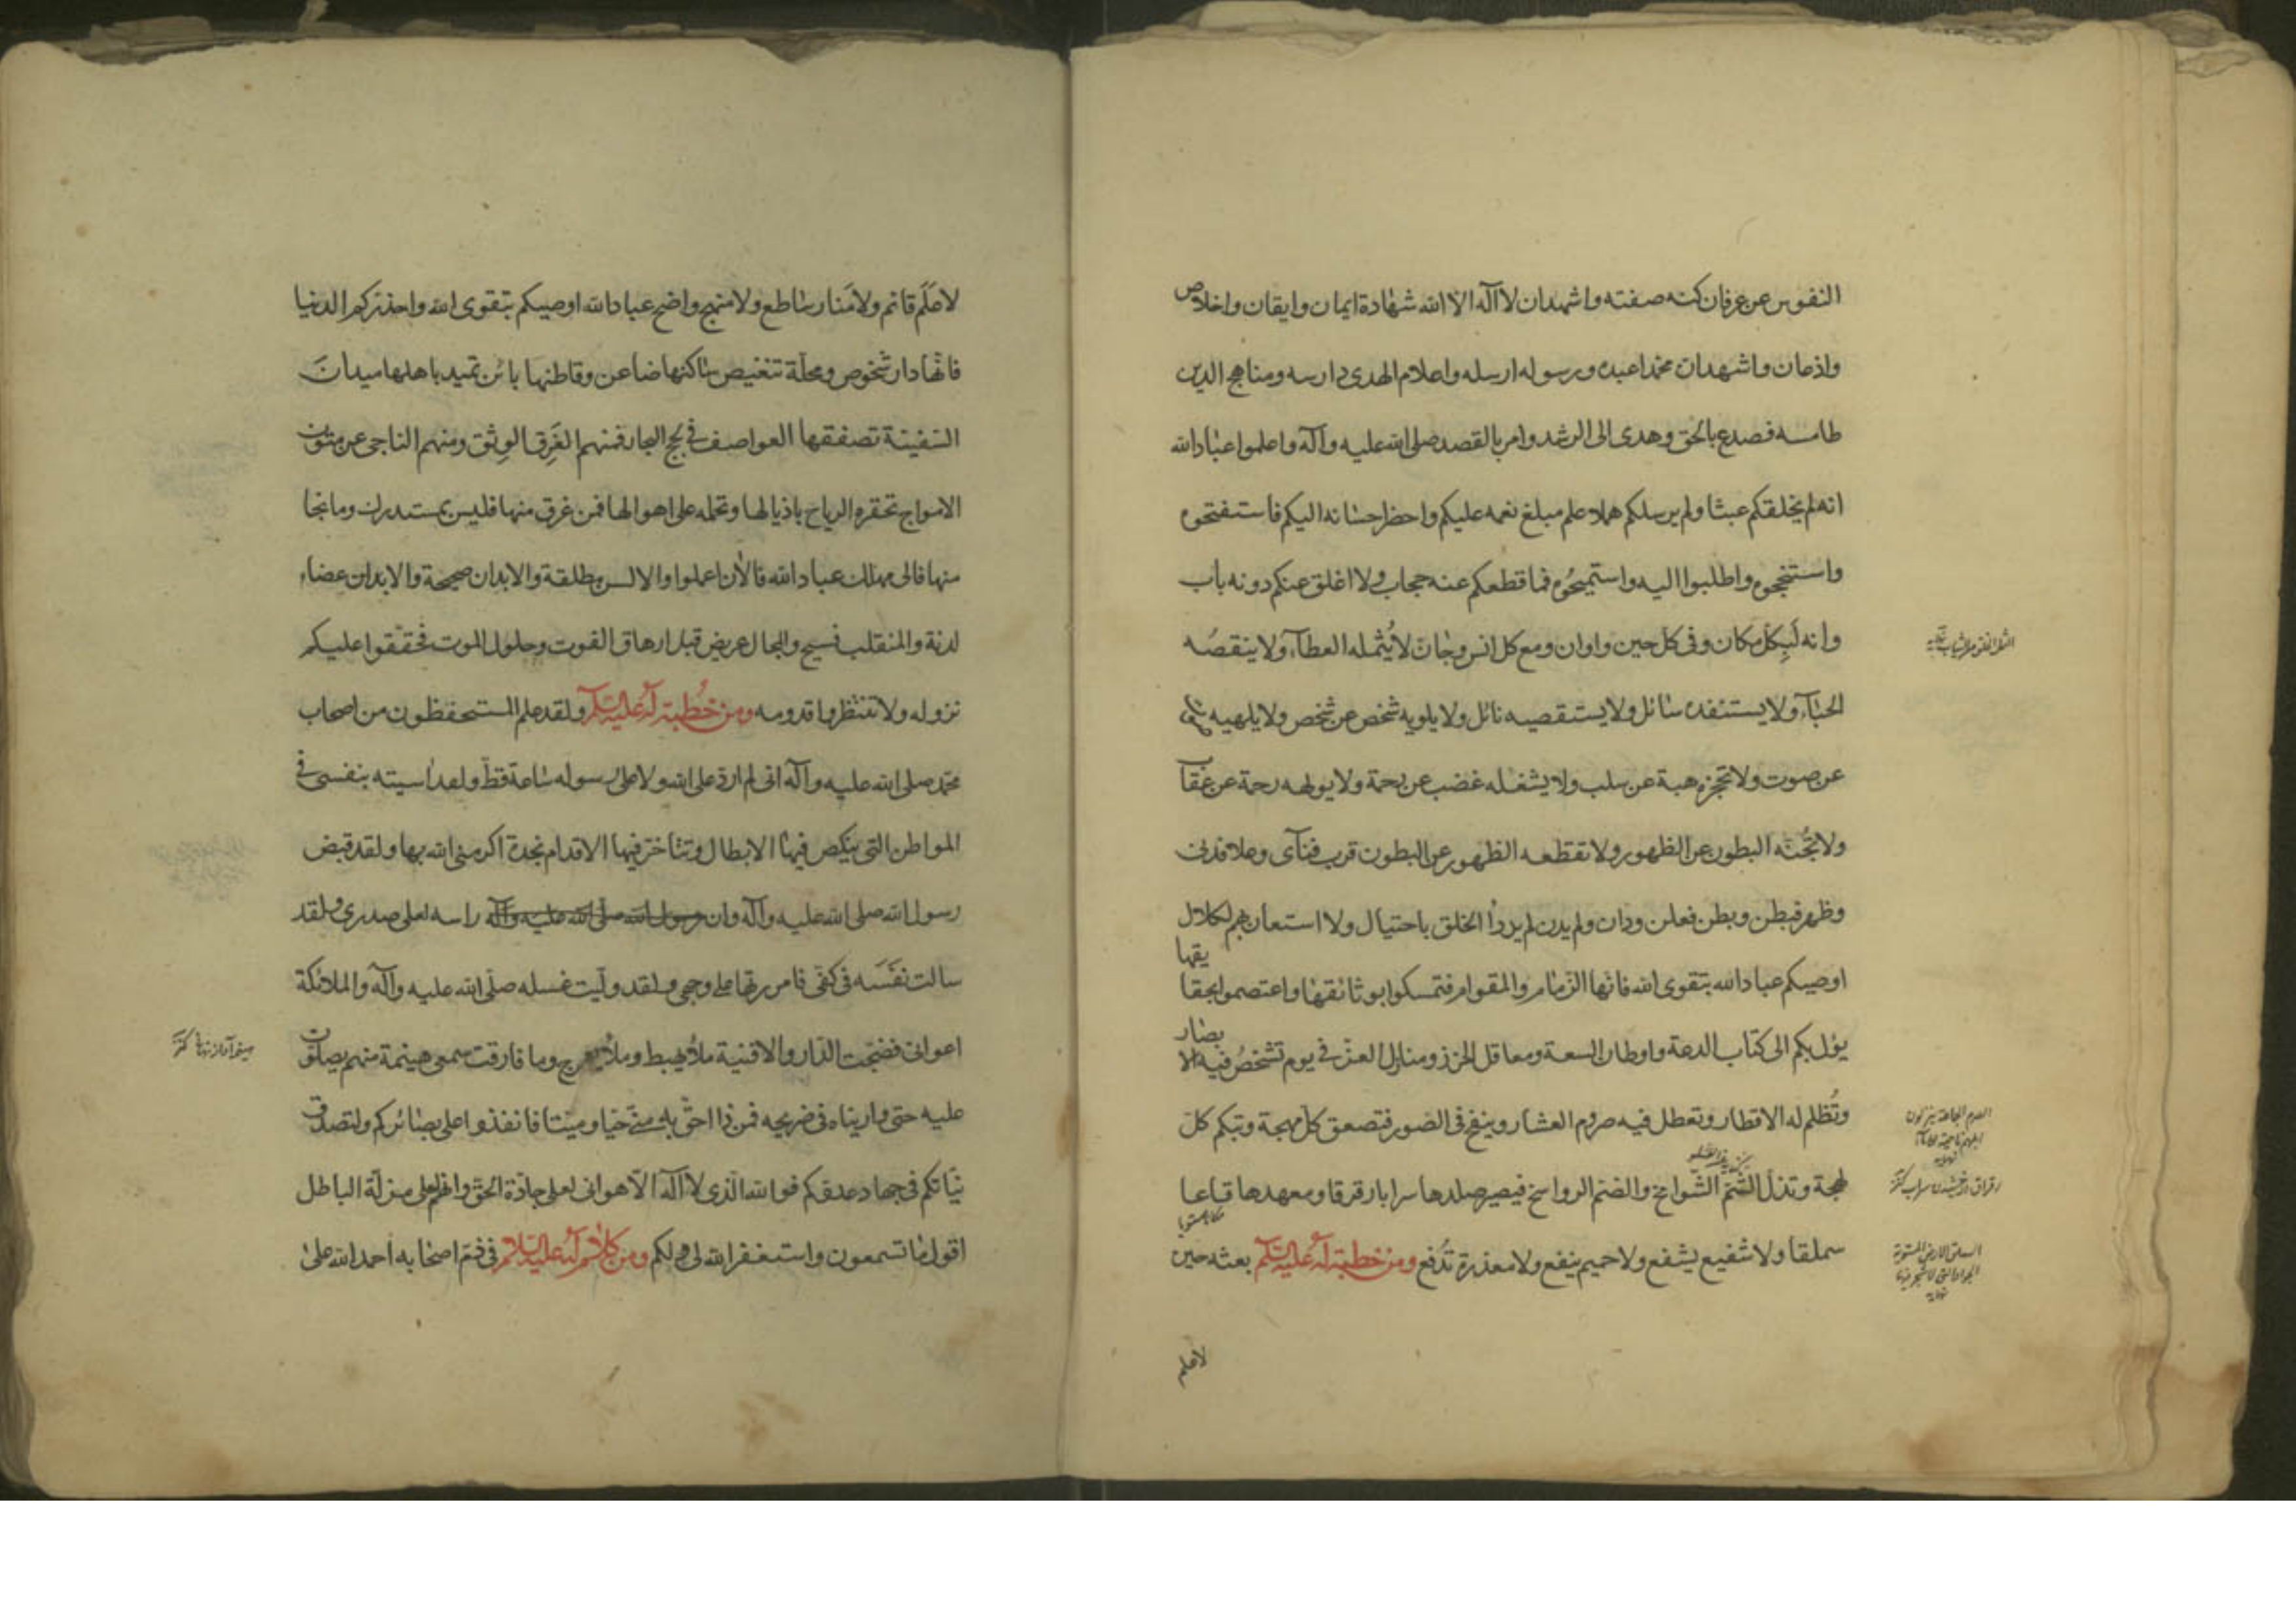 النفوس عن عرفان كنه صفته واشهدان لا اله الا الله شهادة ايمان وايقان واخلاص
واذعان واشهدان محمدا عبده ورسوله ارسله واعلام الهدى دارسه ومناهج الدين
طامسه فصدع بالحق وهدى الى الرشد وامر بالقصد صلى الله عليه وآله واعلموا عباد الله
انه لم يخلقكم عبثا ولم يرسلكم هملا علم مبلغ نعمه عليكم واحصى احسانه اليكم فاستفتحوه
واستنجحوه واطلبوا اليه واستميحوه فما قطعكم عنه حجاب ولا اغلق عنكم دونه باب
وانه لبكل مكان وفى كل حين واوان ومع كل انس وجان لا يثمله العطآء ولا ينقصه
الحبآء ولا يستنفده سائل ولا يستقصيه نائل ولا يلويه شخص عن شخص ولا يلهيه صوت
عن صوت ولا تحجزه هبة عن سلب ولا يشغله غضب عن رحمة ولا يولهه رحمة عن عقاب
ولا تُجنّه البطون عن الظهور ولا تقطعه الظهور عن البطون قرب فنآى وعلا فدنى
وظهر فبطن وبطن فعلن ودان ولم يدن لم يذرأ الخلق باحتيال ولا استعان بهم لكلال
اوصيكم عباد الله بتقوى الله فانها الزمام والقوام فتمسكوا بوثائقها واعتصموا بحقايقها
يؤل بكم الى كتاب الدعة واوطان السعة ومعاقل الحرز ومنازل العزّ فى يوم تشخصُ فيه الابصار
وتُظلم له الاقطار وتعطل فيه صروم العشار وينفخ فى الصور فتصعق كل مهجة وتبكم كل
لهجة وتذل الشمّ الشوامخ والصم الرواسخ فيصير صلدها سرابا رقرقا ومعهدها قاعا
سملقا ولا شفيع يشفع ولا حميم ينفع ولا معذرة تدفع ومن خطبة له عليه السلام بعثه حين
لا علم
لا علَم قائم ولا مَنار ساطع ولا منهج واضح عباد الله اوصيكم بتقوى الله واحذركم الدنيا
فانها دار شخوص ومحلة تنغيص ساكنها ضاعن وقاطنها بائن تميد باهلها ميدان
السفينة تصفقها العواصف فى لجج البحار فمنهم الغَرِق الوبِق ومنهم الناجى عن متون
الامواج تحفزه الرياح باذيالها وتحمله على اهوالها فمن غرق منها فليس بمستدرك وما نجا
منها فالى مهلك عباد الله فالأن اعملوا والالسن مطلقة والابدان صحيحة والاعضاء
لدنة والمنقلب فسيح والمجال عريض قبل ارهاق الفوت وحلول الموت فحققوا عليكم
نزوله ولا تنتظروا قدومه ومن خُطبة له عليه السلام ولقد علم المستحفظون من اصحاب
محمد صلى الله عليه وآله انى لم اردّ على الله ولا على رسوله ساعة قطّ ولقد اسيته بنفسى فى
المواطن التى ينكص فيها الابطال وتتأخر فيها الاقدام نجدة اكرمنى الله بها ولقد قبض
رسول الله صلى الله عليه وآله وان رسول الله صلى الله عليه وآله راسه لعلى صدرى ولقد
سالت نَفسَه فى كفّى فامررتها على وجهى ولقد وليت غسله صلّى الله عليه وآله والملائكة
اعوانى فضجت الدار والافنية ملأ يهبط وملأ يعرج وما فارقت سمعى هينمة منهم يصلون
عليه حتى واريناه فى ضريحه فمن ذا احقّ به منّى حيّا وميتا فانفذوا على بصائركم ولتصدق
نياتكم فى جهاد عدوكم فوالله الّذى لا اله الّا هو انى لعلى جادّة الحق وانهم لعلى مزلّة الباطل
اقول ما تسمعون واستغفر الله لى ولكم ومن كلام له عليه السلام فى ذمّ اصحابه احمد الله على